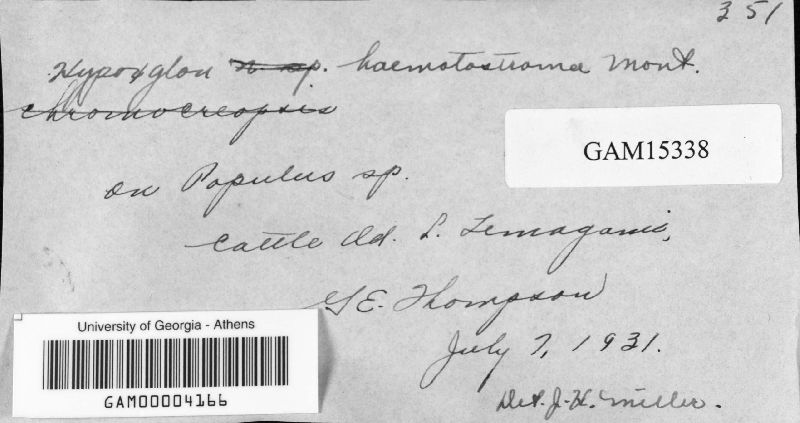 351
Hypoxylon n. sp. haematostroma Mont.
chromocreopsis
GAM15338
on Populus sp.
Cattle Id. L. Temagami,
G E. Thompson
July 7, 1931.
Det. J. H. Miller.
University of Georgia - Athens
GAM00004166